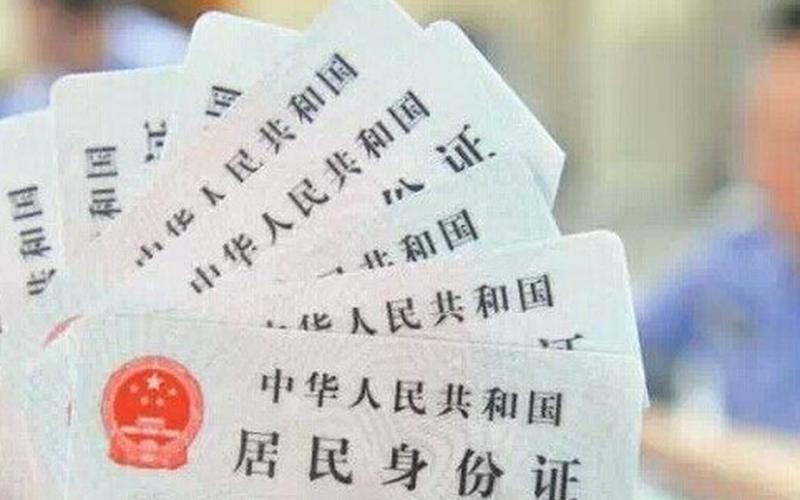 共和国
和国
证
国
中华人民共和国
中华人民共和国
份证
民共和国
华人民共和国
证
中华人民共和国
居民身份证